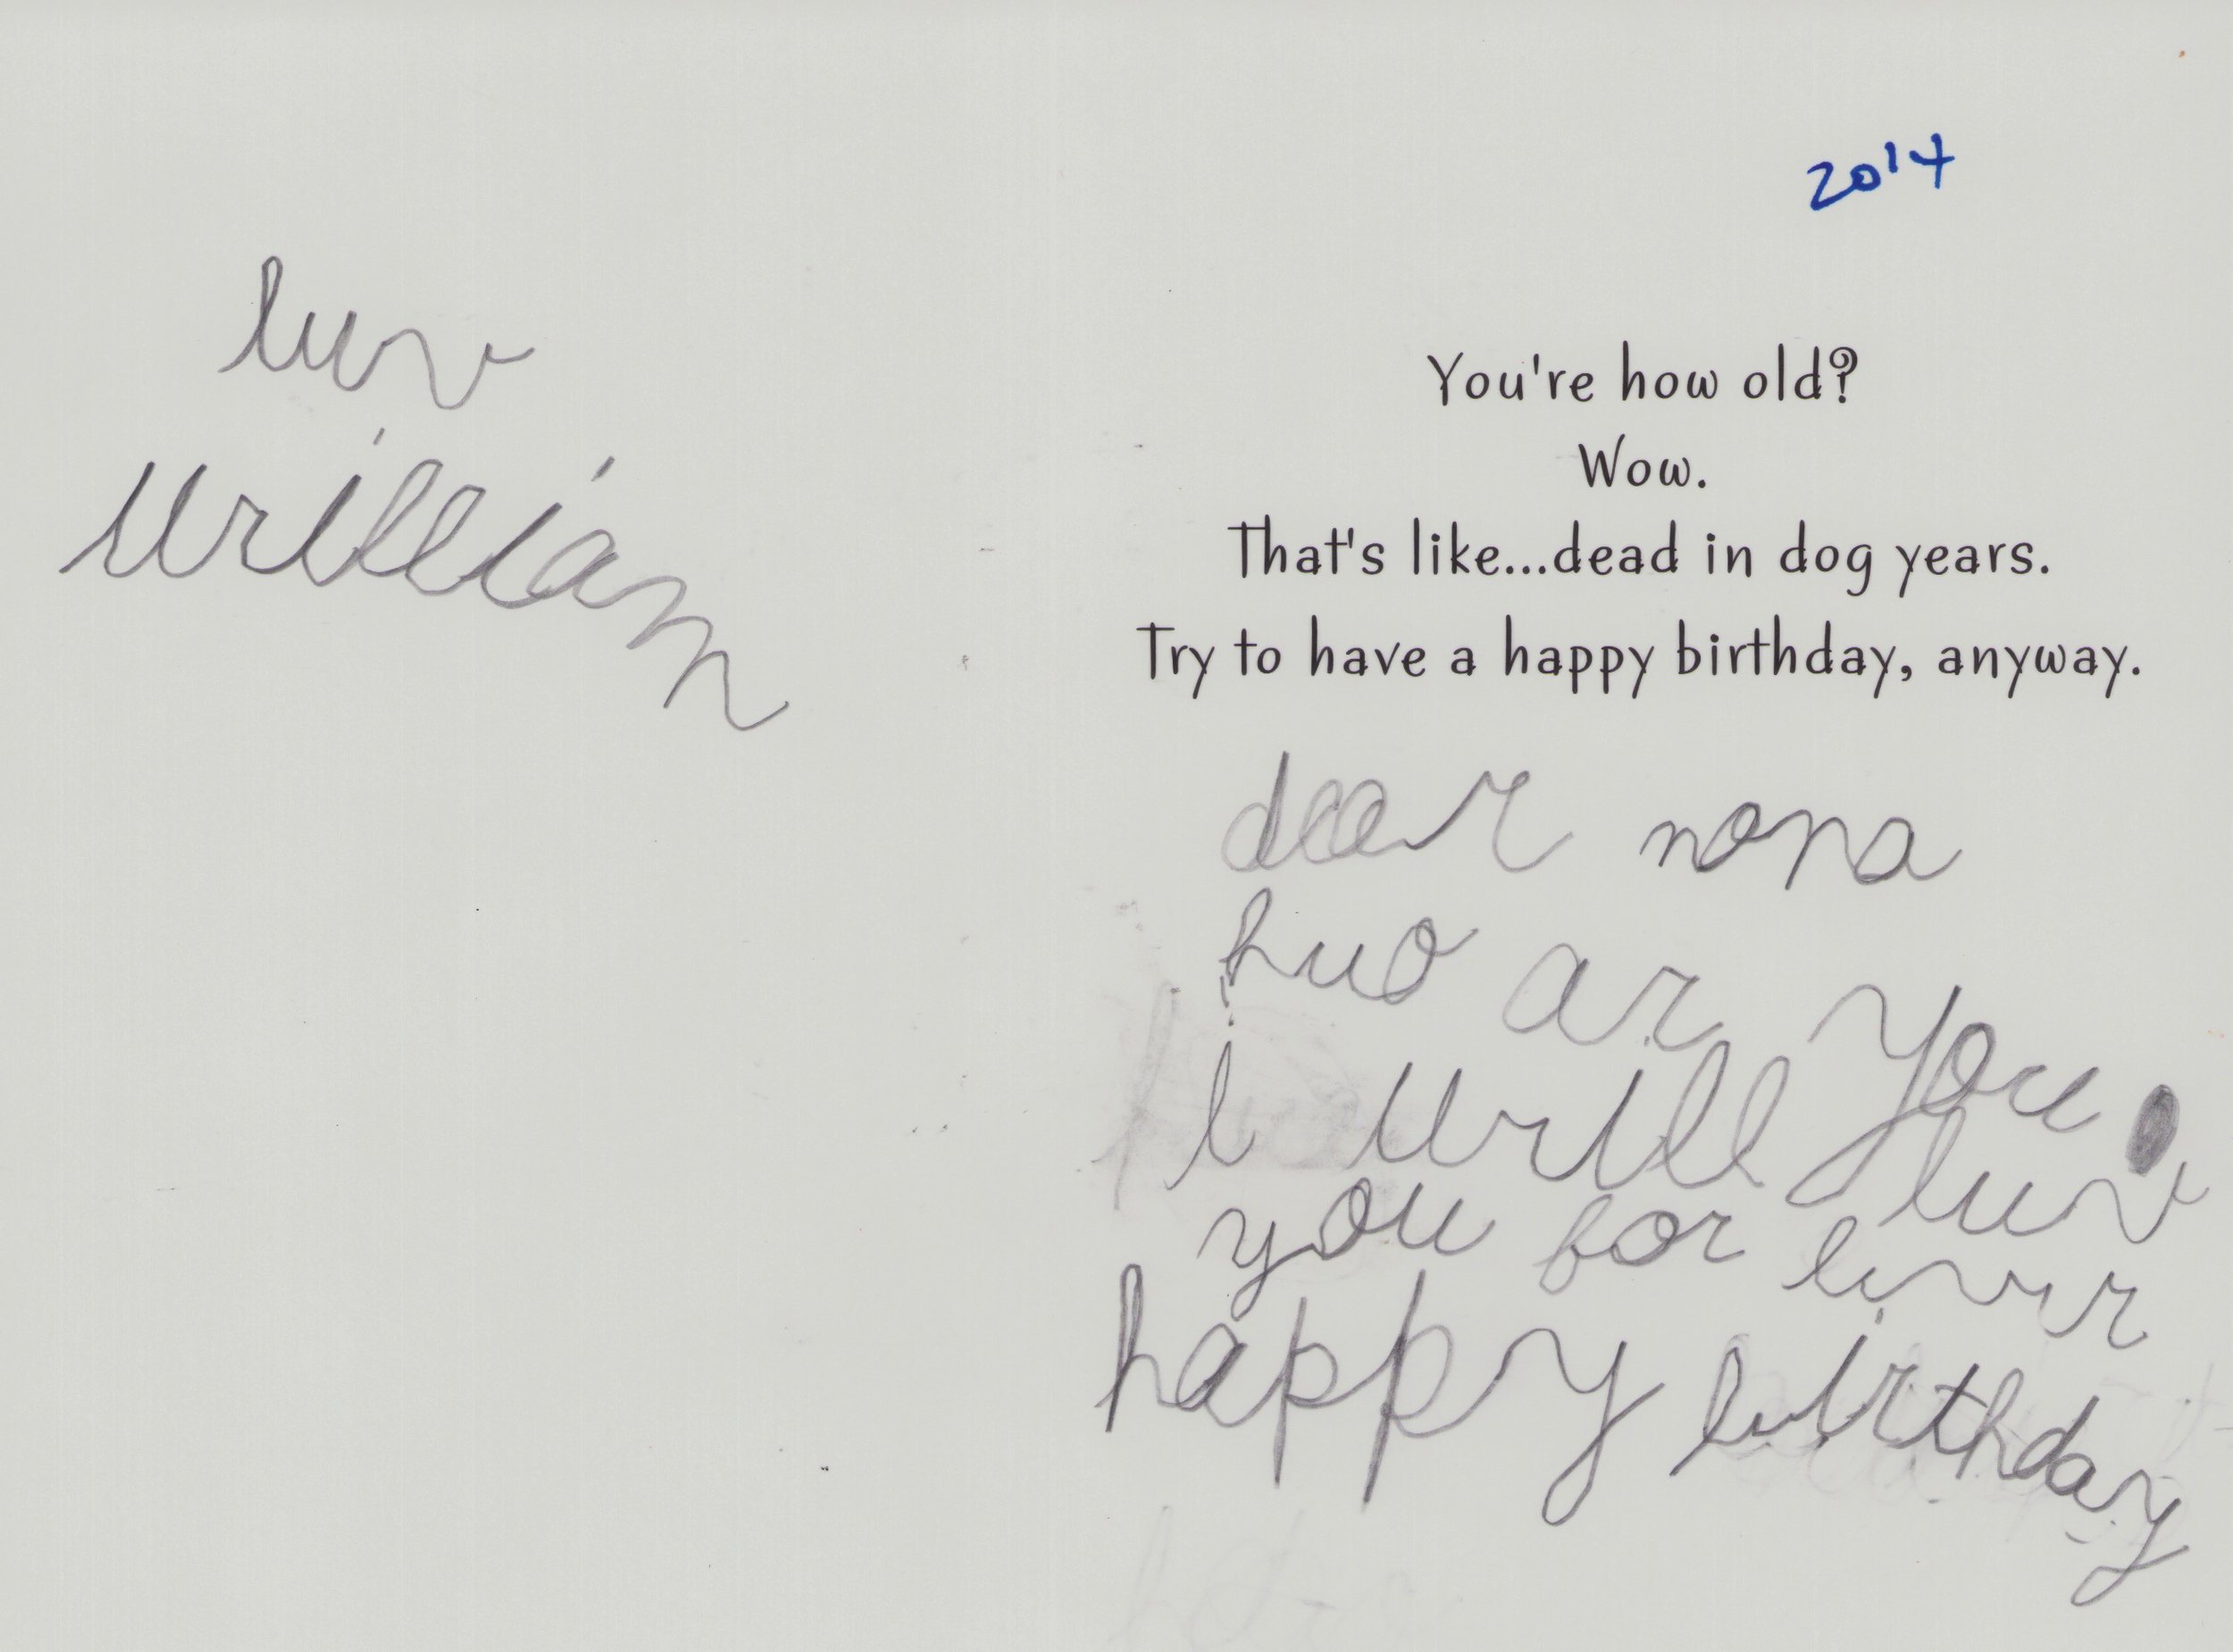 luv
william
2014
You're how old?
Wow.
That's like...dead in dog years.
Try to have a happy birthday, anyway.
dear nona
huo ar you
i will luv
you for
happy birthday